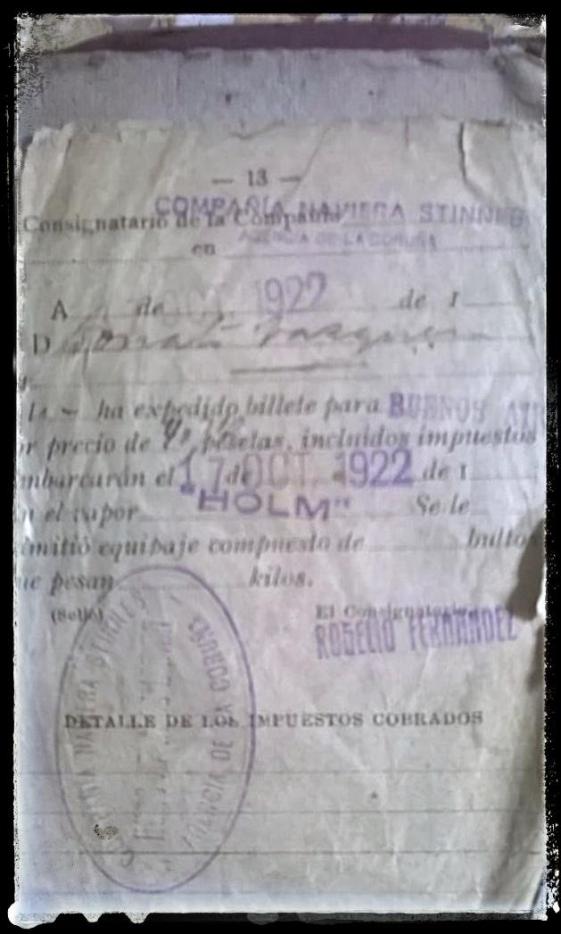 — 13 —
Consignatario de la Compañía COMPAÑIA NAVIERA STINNES
AGENCIA DE LA CORUÑA
en
A de OCT. 1922 de 1
D
la — ha expedido billete para BUENOS AIR
or precio de pesetas, incluidos impuestos
mbarcarán el 17 de OCT. 1922 de 1
n el vapor "HOLM" Se le
imitió equipaje compuesto de bultos
ue pesan kilos.
(Sello) El Consignatario,
ROGELIO FERNANDEZ
COMPAÑIA NAVIERA STINNES
AGENCIA DE LA CORUÑA
DETALLE DE LOS IMPUESTOS COBRADOS